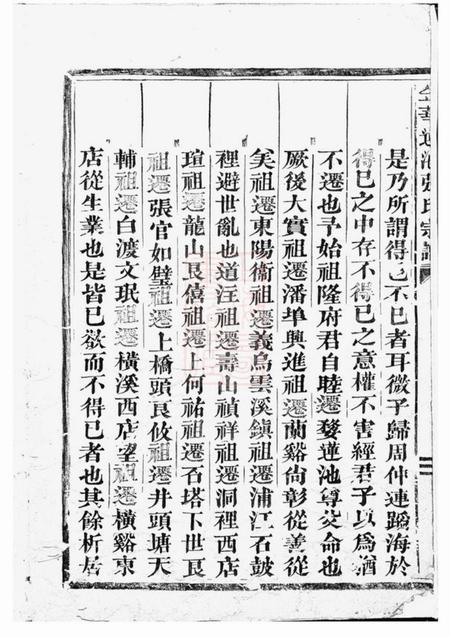 金華道滙張氏宗譜
是乃所謂得已不已者耳微子歸周仲連蹈海於
得已之中存不得已之意權不害經君子以為猶
不遷也予始祖隆府君自睦遷婺蓮池尊父命也
厥後大實祖遷潘埠興進祖遷蘭谿尚彰從善從
矣祖遷東陽衛祖遷義烏雲溪鎮祖遷浦江石鼓
裡避世亂也道汪祖遷壽山禎祥祖遷洞裡西店
瑄祖遷龍山艮僖祖遷上何祐祖遷石塔下世艮
祖遷張官如璧祖遷上橋頭艮攸祖遷井頭塘天
輔祖遷白渡文珉祖遷橫溪西店望祖遷橫谿東
店從生業也是皆已欲而不得已者也其餘析居